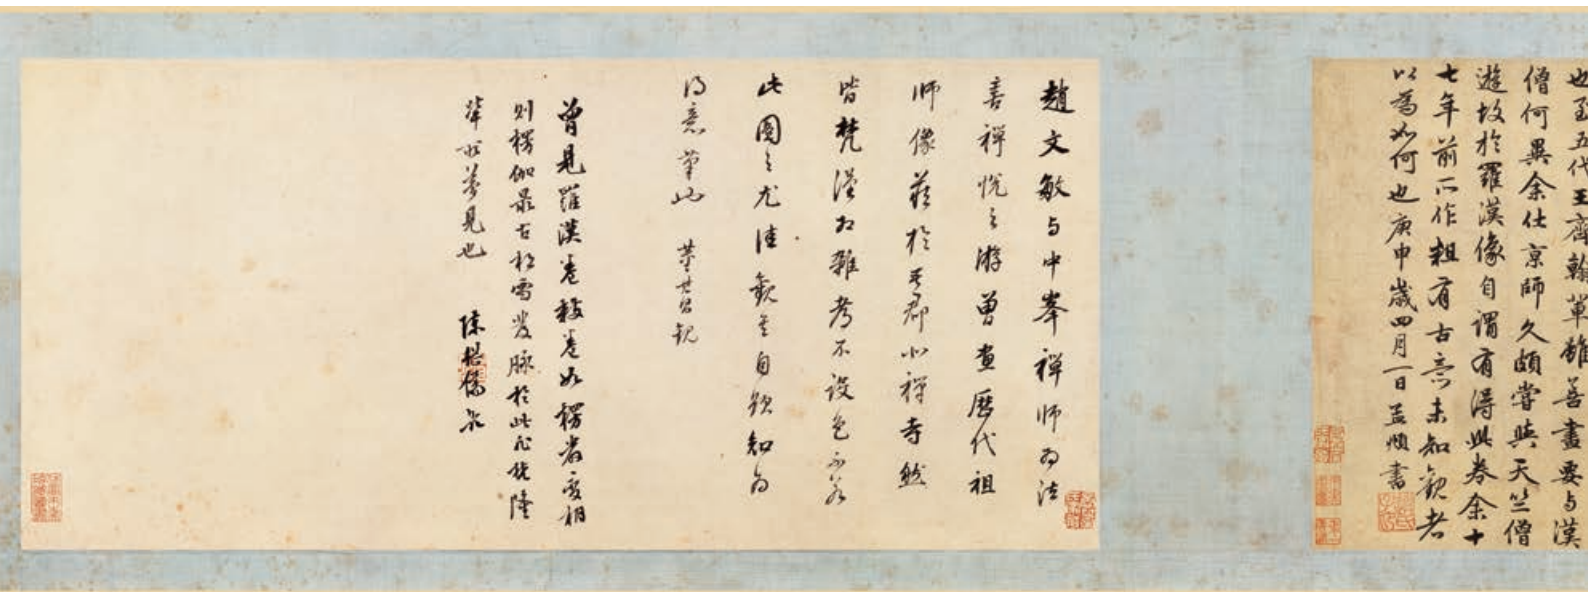 也至五代王齊翰輩雖善畫要与漢
僧何異余仕京師久頗嘗與天竺僧
遊故於羅漢像自謂有得此卷余十
七年前所作粗有古意未知觀者
以為如何也庚申歲四月一日孟頫書
趙文敏与中峯禪師為法
喜禪悅之游曾畫歷代祖
師像藏於吾郡北禪寺然
皆梵漢相雜都不設色不若
此圖之尤佳觀其自題知為
得意筆也 董其昌觀
曾見羅漢卷數卷如楞嚴變相
則楞伽最古松雪發脉於此非梵隆
輩所夢見也 陳継儒